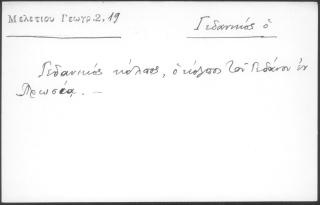 Μελετίου Γεωγρ. 2, 19
Γεδανικός ὁ
Γεδανικός κόλπος, ὁ κόλπος τοῦ Γεδάνου ἐν
Πρωσσίᾳ. —